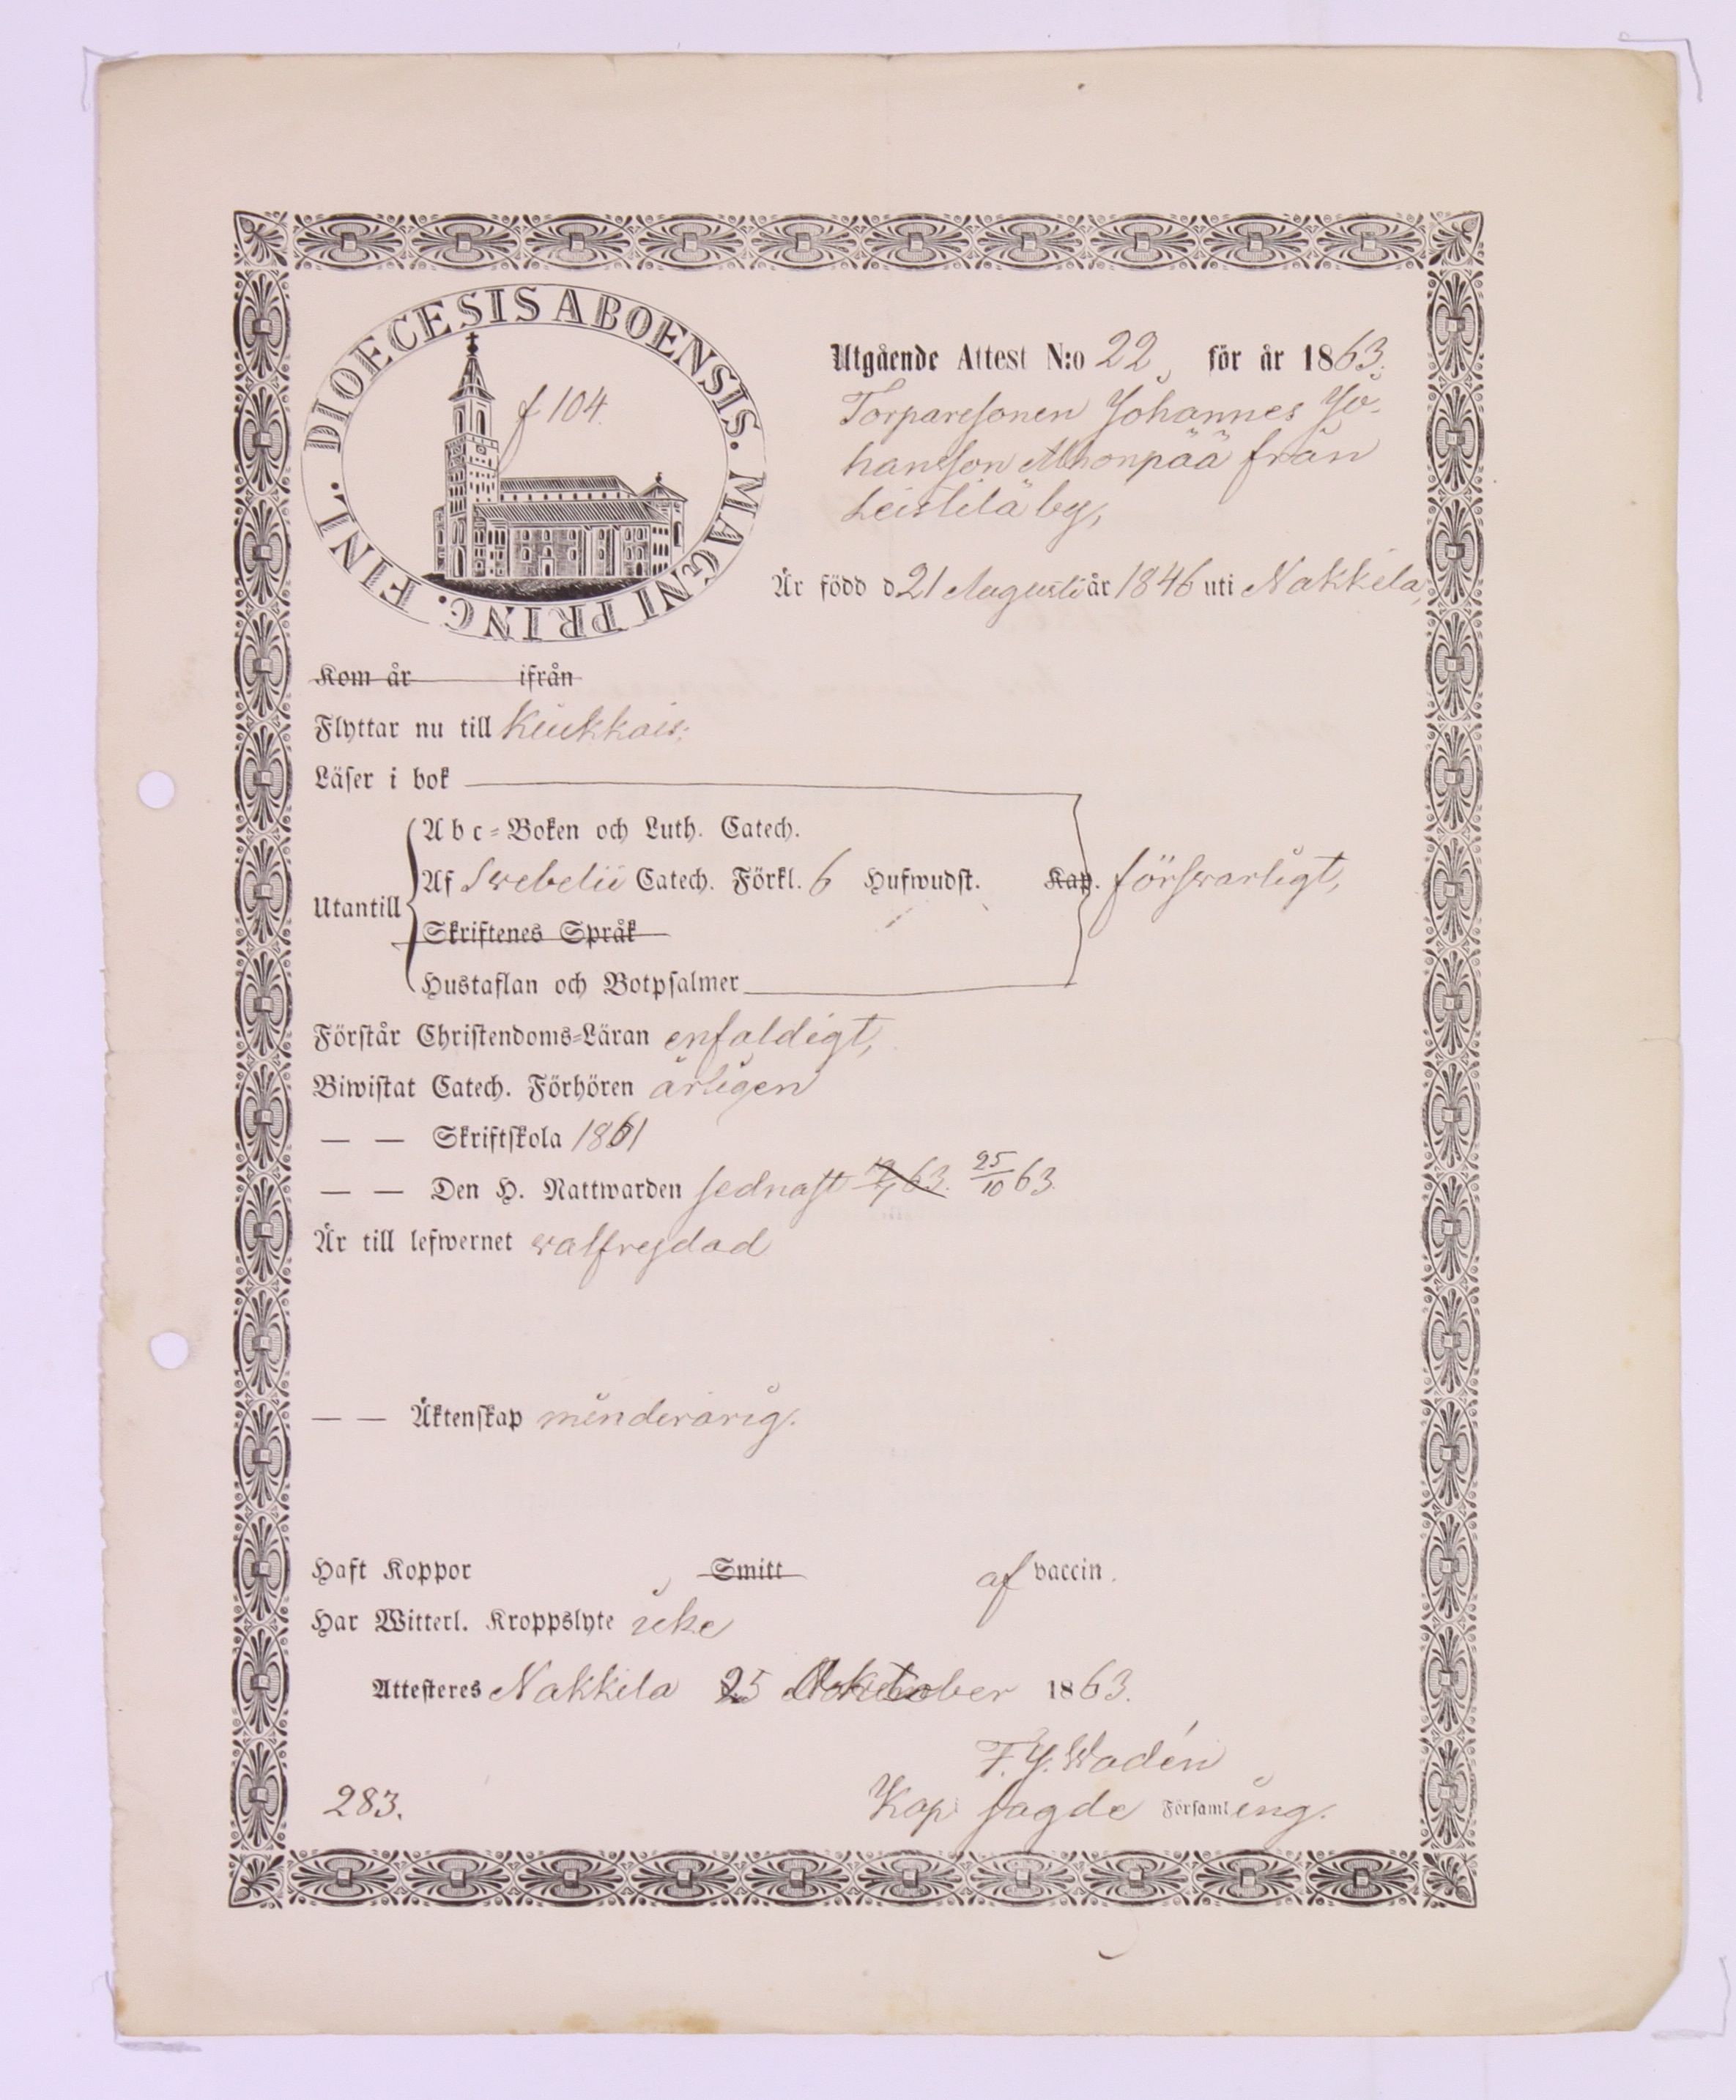 DIOECESIS ABOENSIS. MAGNI PRINC. FINL.
f 104.
Utgående Attest N:o 22, för år 1863.
Torparesonen Johannes Jo-
hansson Ahonpää från
Leistilä by,
Är född d 21 Augusti år 1846 uti Nakkila,
Kom år ifrån
Flyttar nu till Kiukkais.
Läser i bok
Utantill
Abc-Boken och Luth. Catech.
Af Svebelii Catech. Förkl. 6 Hufwudst. Kap. försvarligt,
Skriftenes Språk
Hustaflan och Botpsalmer
Förstår Christendoms-Läran enfaldigt,
Biwistat Catech. Förhören årligen
— — Skriftskola 1861
— — Den H. Nattwarden sednast 63. 25/10 63.
Är till lefwernet välfrejdad
— — Äktenskap minderårig.
Haft Koppor Smitt af vaccin.
Har Witterl. Kroppslyte icke
Attesteres Nakkila 25 Oktober 1863.
F. J. Wadén
283.
Kap. i sagde Församling.